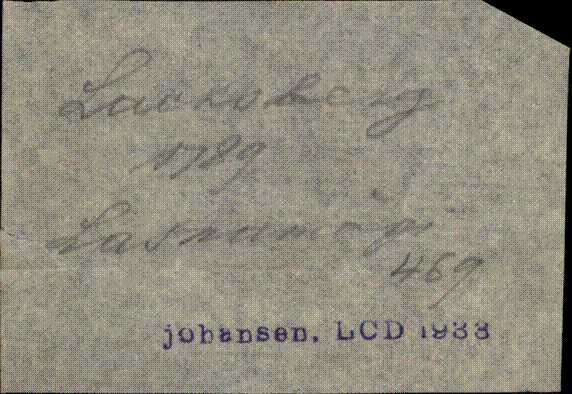 Laaksberg
1789
Lasnamägi
469
johansen, LCD 1933